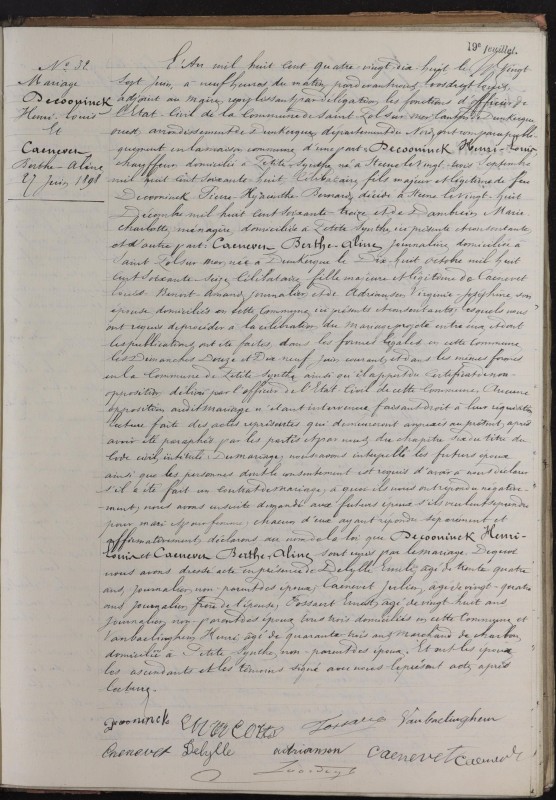 19e feuillet.
No 32
Mariage
Decooninck
Henri-Louis
Et
Caenevet
Berthe-Aline
27 Juin 1898
L'An mil huit cent quatre-vingt dix-huit le vingt
sept Juin, à neuf heures du matin, pardevant nous
adjoint au maire, remplissant par délégation, les fonctions d'officier de
l'Etat-Civil de la Commune de Saint-Pol sur mer, canton de Dunkerque
ouest, arrondissement de Dunkerque, département du Nord, ont comparu publi-
quement en la maison commune, d'une part: Decooninck Henri-Louis,
chauffeur, domicilié à Petite Synthe, né à le vingt-trois Septembre
mil huit cent soixante-huit célibataire, fils majeur et légitime de feu
Decooninck Pierre-Hyacinthe-Bernard, décédé à le vingt-huit
Décembre mil huit cent soixante-treize et de Marie-
Charlotte, ménagère, domiciliée à Petite Synthe, ici présente et consentante,
et d'autre part: Caenevet Berthe-Aline, journalière, domiciliée à
Saint-Pol sur mer, née à Dunkerque le Dix-huit octobre mil huit
cent soixante-seize, célibataire, fille majeure et légitime de Caenevet
Louis-Benoit-Amand, journalier, et de Adriansen Virginie-Joséphine, son
épouse domiciliés en cette Commune, ici présents et consentants; lesquels nous
ont requis de procéder à la célébration du mariage projeté entre eux, et dont
les publications ont été faites, dans les formes légales, en cette Commune,
les Dimanches Douze et Dix-neuf Juin courant, et dans les mêmes formes
en la Commune de Petite Synthe ainsi qu'il appert du certificat de non-
opposition délivré par l'officier de l'Etat-Civil de cette Commune. Aucune
opposition audit mariage n'étant intervenue faisant droit à leur réquisition
lecture faite des actes représentés qui demeureront annexés au présent, après
avoir été paraphés par les parties et par nous, du chapitre six du titre du
Code civil, intitulé: Du mariage, nous avons interpellé les futurs époux
ainsi que les personnes dont le consentement est requis d'avoir à nous déclarer
s'il a été fait un contrat de mariage, à quoi ils nous ont répondu négative-
ment, nous avons ensuite demandé aux futurs époux s'ils veulent se prendre
pour mari et pour femme: chacun d'eux ayant répondu séparément et
affirmativement, déclarons au nom de la loi que Decooninck Henri-
Louis et Caenevet Berthe-Aline sont unis par le mariage. De quoi
nous avons dressé acte en présence de Delylle Emile, âgé de trente-quatre
ans, journalier, non-parent des époux; Caenevet Julien, âgé de vingt-quatre
ans journalier, frère de l'épouse, Fossaert Ernest, âgé de vingt-huit ans
journalier, non-parent des époux, tous trois domiciliés en cette Commune, et
Vanbaelinghem Henri âgé de quarante-trois ans, marchand de charbon,
domicilié à Petite Synthe, non-parent des époux. Et ont les époux
les ascendants et les témoins signé avec nous le présent acte, après
lecture.
Decooninck Vanbaelinghem
Caenevet Delylle adrianson caenevet Caenevet